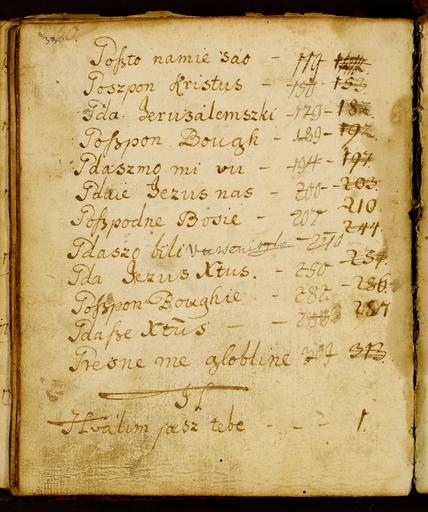 330
Poßto namie sao - 119
Poszpon Kristus - 150 153
Pda Jerusalemszki - 179 - 182
Poßpon Bough - 189 - 192
Pdaszmo mi vu - 194 - 197
Pdaie Jezus nas - 200 - 203
Poßpodne Bosie - 207 210
Pdaszo bili - 240 244
Pda Jezus Xtus. - 250 - 254
Poßpon Boughie - 282 - 286
Pdaße Xtus - - 287
Presne me globline 309 313
H
Hvalim jasz tebe - - - 1.